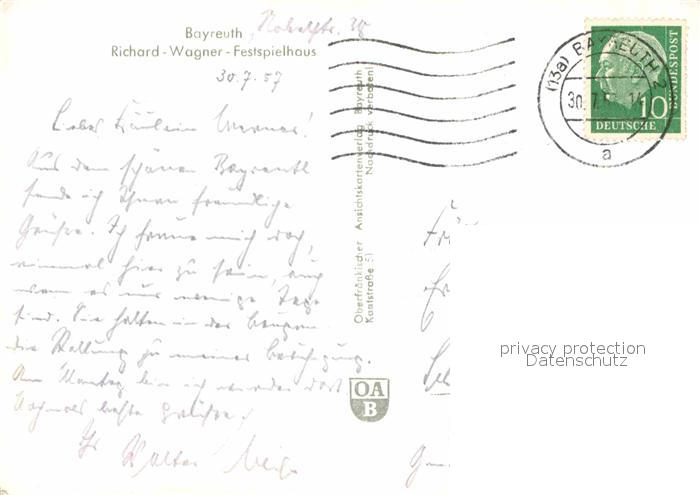 Bayreuth Nobelstr. 38
Richard-Wagner-Festspielhaus
30.7.57
Liebes Fräulein Werner!
Aus dem schönen Bayreuth
sende ich Ihnen freundliche
Grüße. Ich freue mich doch,
einmal hier zu sein, auch
wenn es nur wenige Tage
sind. Sie halten in der
die Stellung zu meiner
Am Montag bin ich wieder dort
Nochmals beste Grüße!
Ihr Walter
Oberfränkischer Ansichtskartenverlag Bayreuth
Kantstraße 51 Nachdruck verboten!
OA
B
(13a) BAYREUTH 2
30.7.
a
10
DEUTSCHE BUNDESPOST
privacy protection
Datenschutz